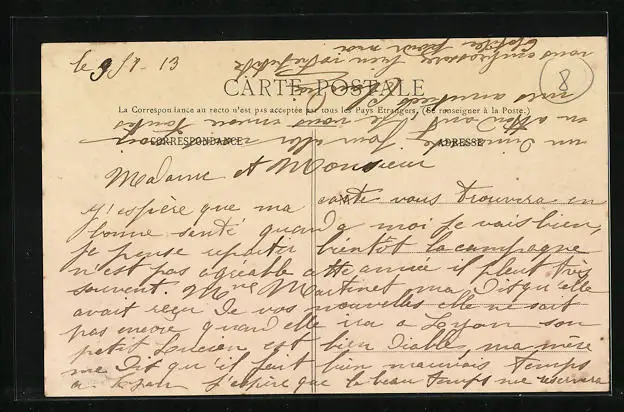 le 9 Sbr 13
8
CARTE POSTALE
La Correspondance au recto n'est pas acceptée par tous les Pays Etrangers. (Se renseigner à la Poste.)
CORRESPONDANCE
ADRESSE
Madame et Monsieur
J'espère que ma carte vous trouvera en
bonne senté quand a moi je vais bien,
je pense repartir bientôt la campagne
n'est pas agreable cette année il pleut très
souvent. Mme Martinet ma dit qu'elle
avait reçu de vos nouvelles elle ne sait
pas encore quand elle ira a Lyon son
petit Lucien est bien Diable, ma mère
me dit qu'il fait bien mauvais temps
a J'espère que le beau temps me reservera
un
en attendant je vous envoie toutes
mes amitiés
vous
pour moi